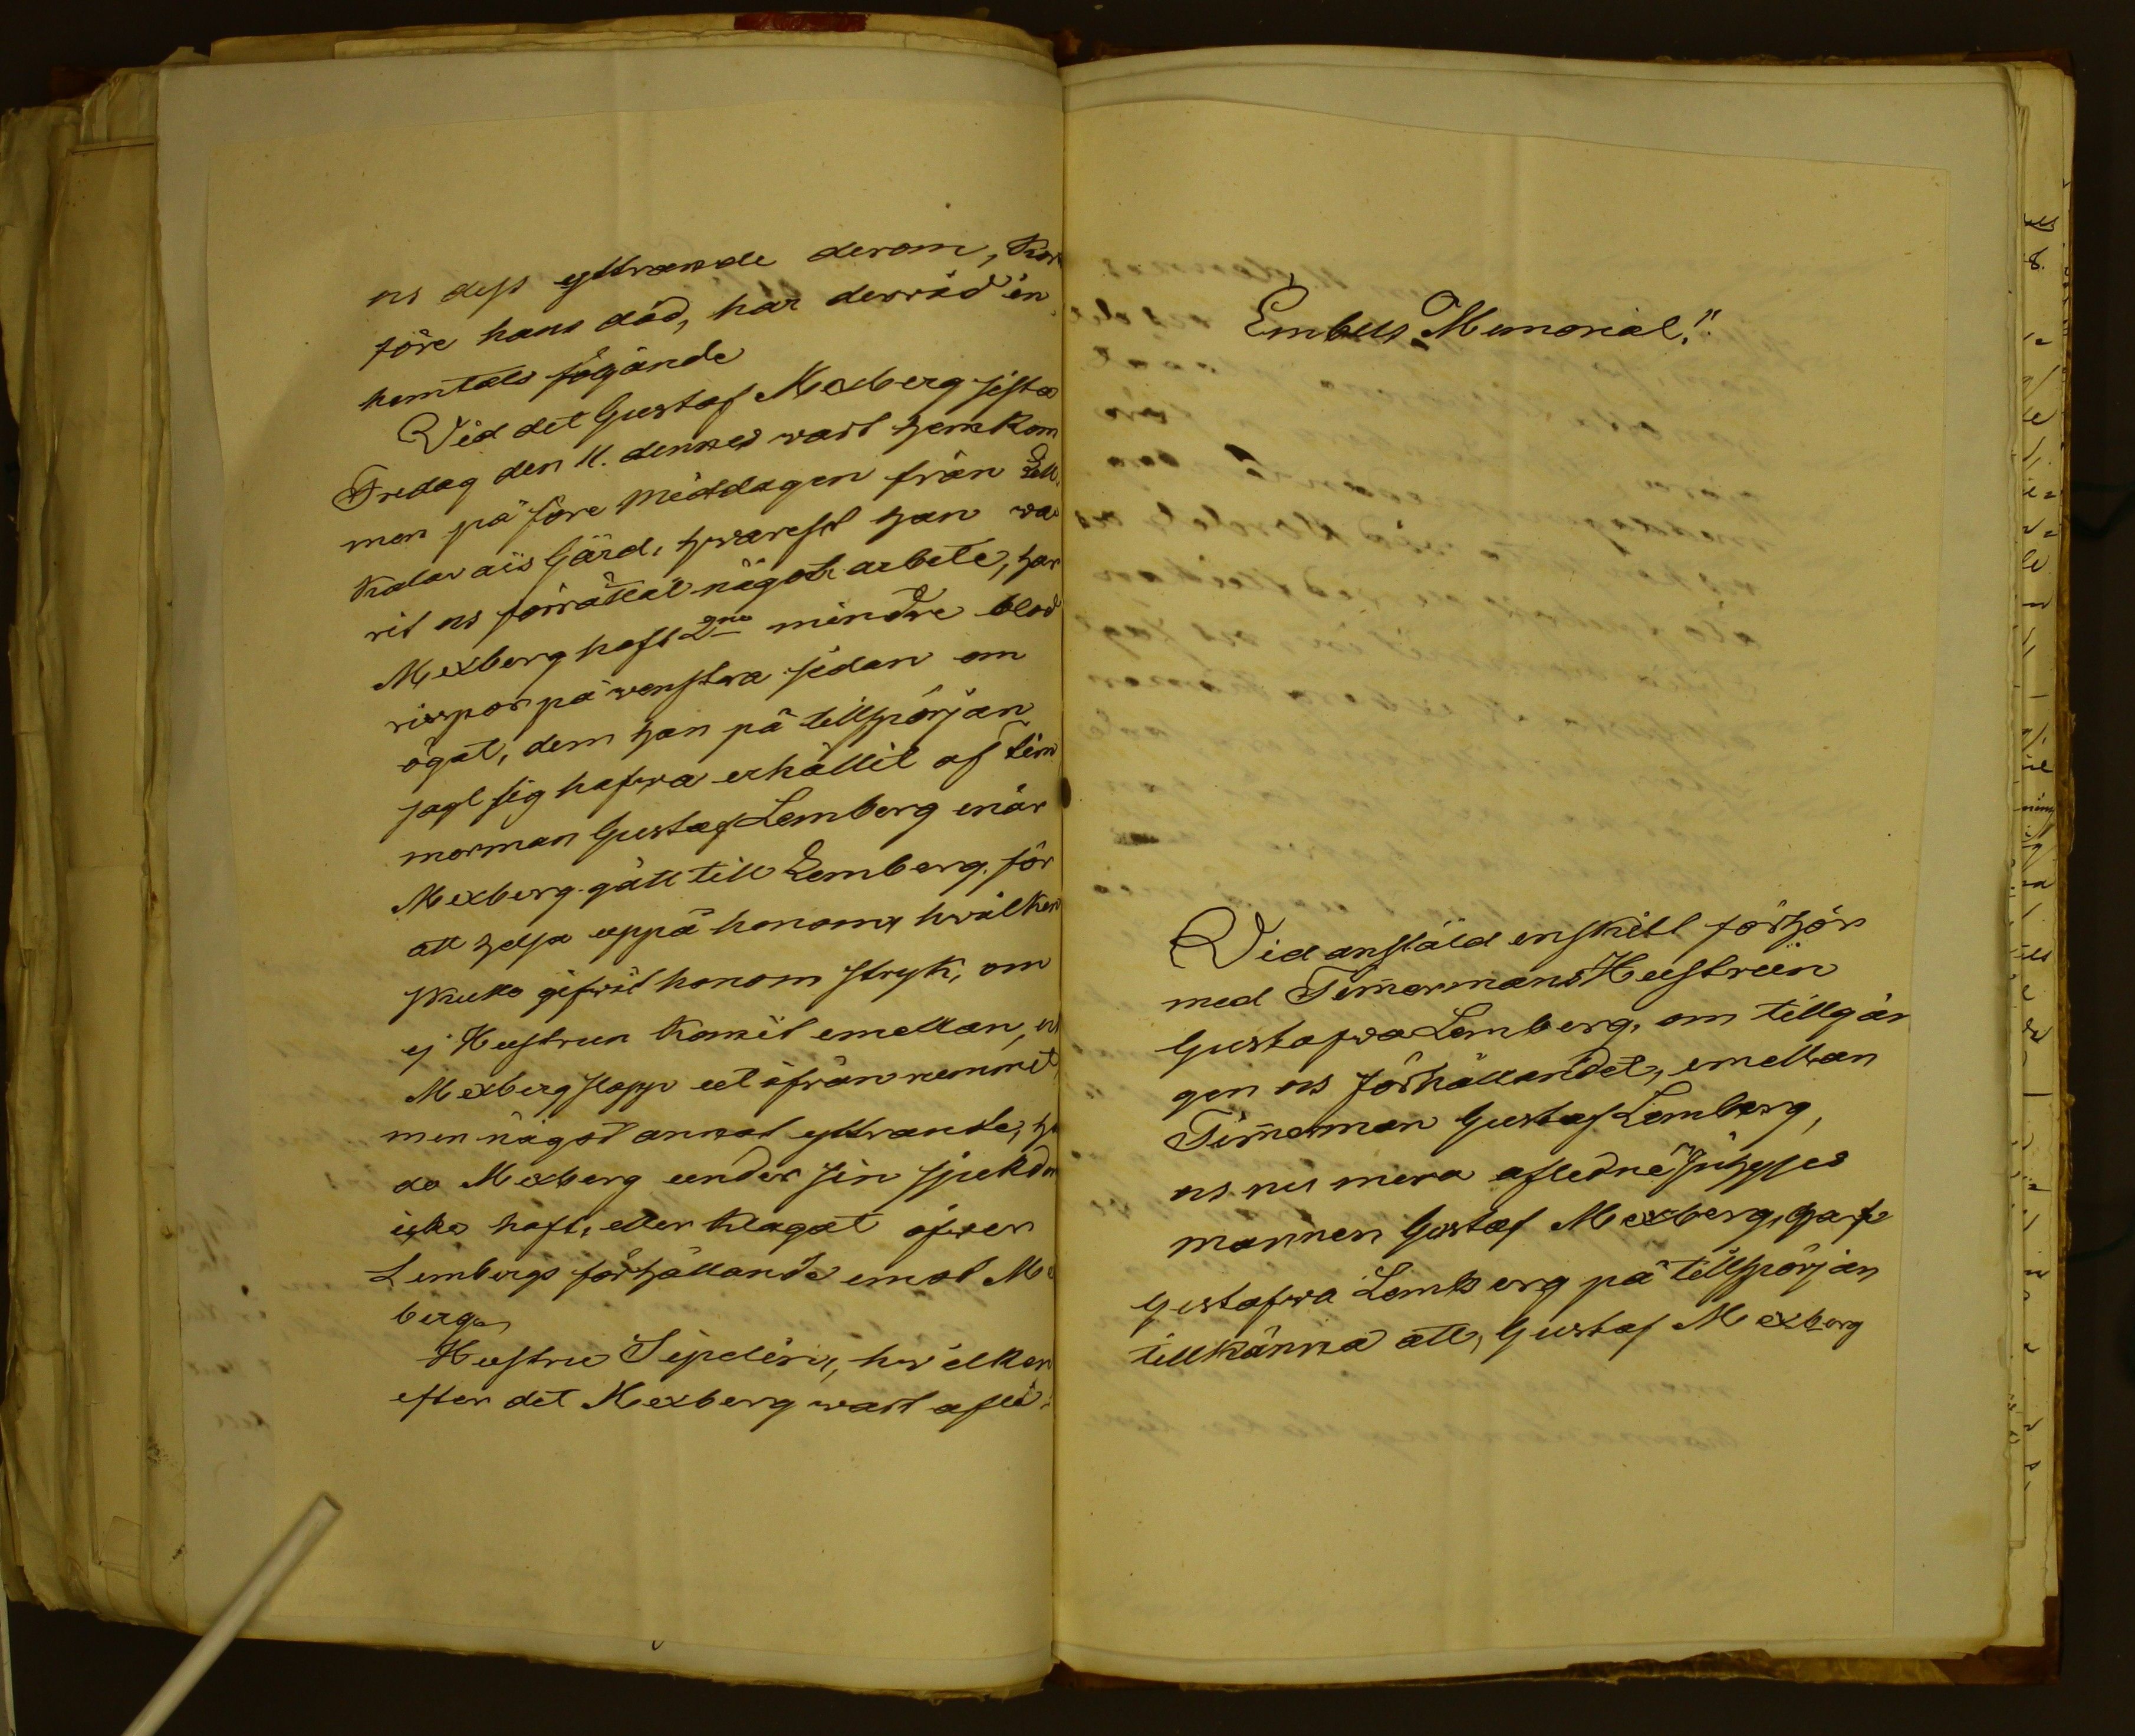 os dess yttrande derom, kor
före hans död, har dervid in
hemtats följande
Vid det Gustaf Mexberg sista
Fredag den 11. dennes wart hemkom
men på före middagen från Lill
Kalarais Gård, hwarest han wa
rit os förrättat något arbete, har
Mexberg haft 2ne mindre blod
rispor på wenstra sidan om
ögat, dem han på tillspörjan
sagt sig hafwa erhållit af tim
merman Gustaf Lemberg enär
Mexberg gått till Lemberg för
att helsa uppå honom, hwilken
skulle gifwit honom stryk, om
ej Hustrun komit emellan, os
Mexberg slapp ut ifrån rummet,
men något annat yttrande, ha
de Mexberg under sin sjukdom
icke haft, eller klagat öfwer
Lembergs förhållande emot Me
berg.
Hustru Sipelin, hwilken
efter det Mexberg wart afli
Embets Memorial!
Vid anstäld enskilt förhör
med Timermans Hustrun
Gustafwa Lemberg, om tillgån
gen os förhållandet, emellan
Timerman Gustaf Lemberg,
os nu mera aflidne
mannen Gustaf Mexberg, gaf
Gustafwa Lemberg på tillspörjan
tillkänna att, Gustaf Mexberg